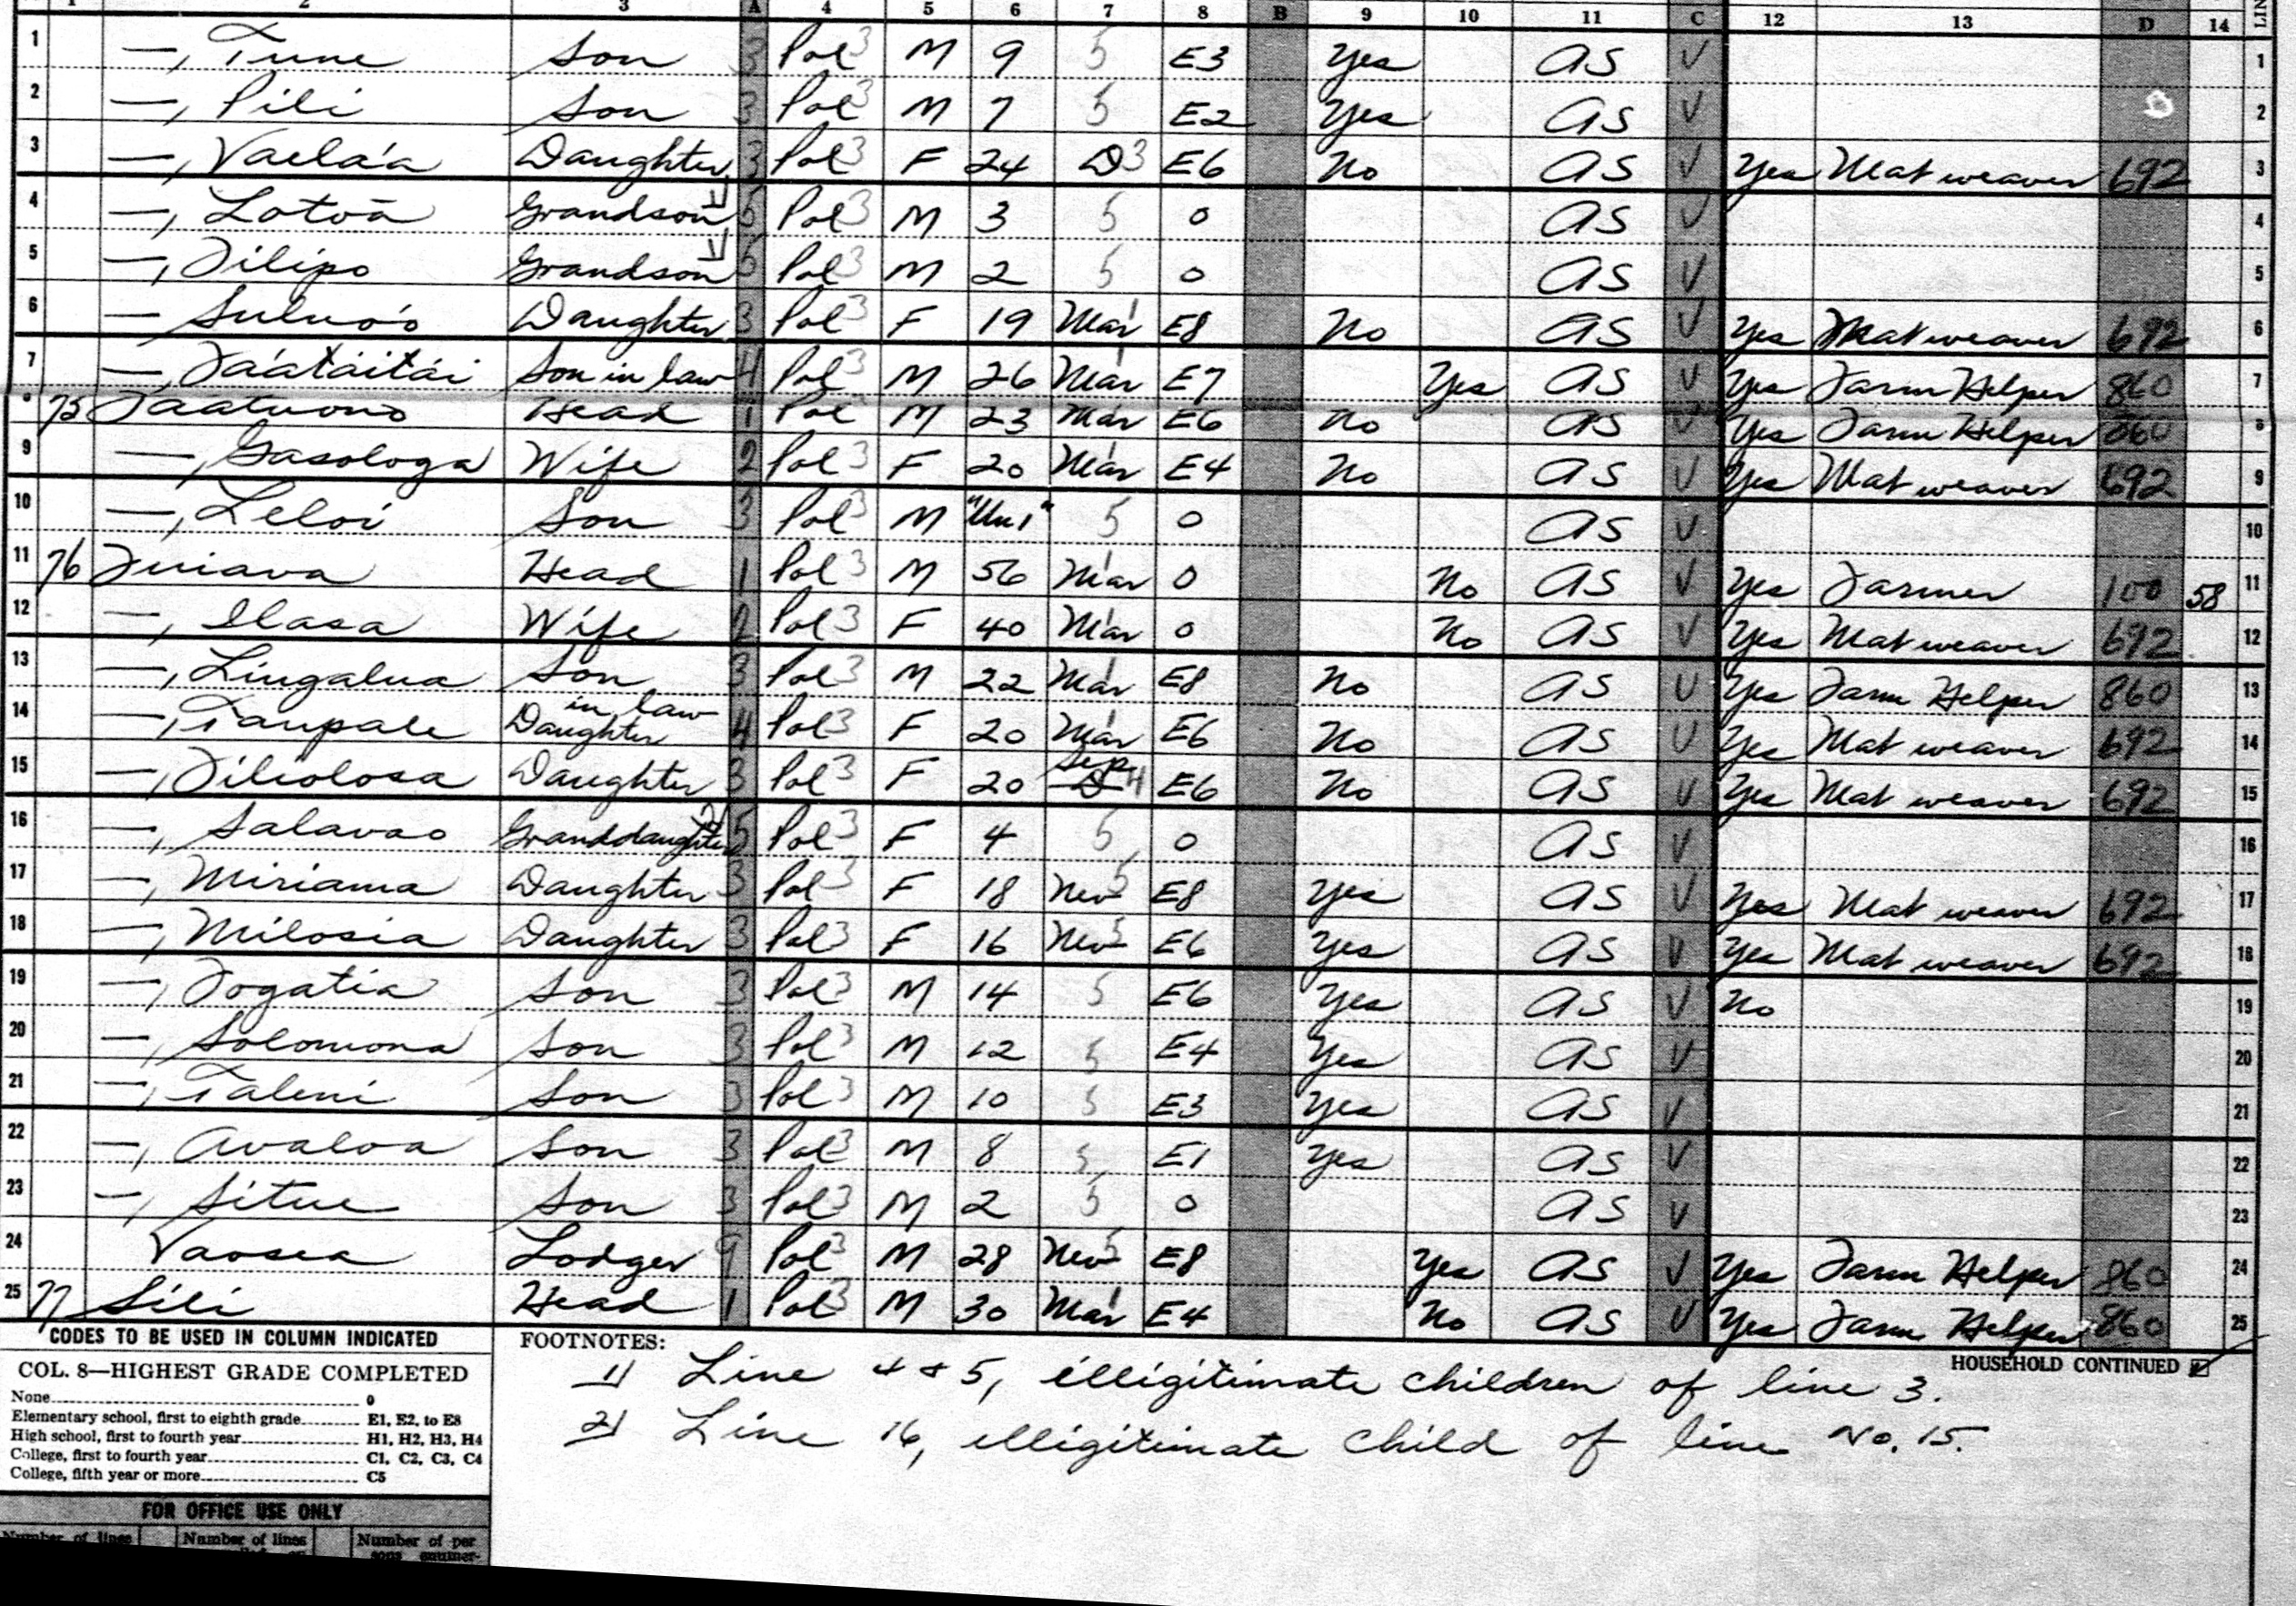 1 2 3 A 4 5 6 7 8 B 9 10 11 C 12 13 D 14 LIN
1 —, Tune Son 3 Pol 3 M 9 5 E3 Yes AS V 1
2 —, Pili Son 3 Pol 3 M 7 5 E2 Yes AS V 2
3 —, Vaela'a Daughter 3 Pol 3 F 24 D 3 E6 No AS V Yes Mat weaver 692 3
4 —, Lotoā Grandson 1/ 5 Pol 3 M 3 5 0 AS V 4
5 —, Filipo Grandson 1/ 5 Pol 3 M 2 5 0 AS V 5
6 — Suluo'o Daughter 3 Pol 3 F 19 Mar 1 E8 No AS V Yes Mat weaver 692 6
7 —, Fa'ata'ita'i Son in law 4 Pol 3 M 26 Mar 1 E7 Yes AS V Yes Farm Helper 860 7
8 75 Faatuono Head 1 Pol M 23 Mar E6 No AS V Yes Farm Helper 860 8
9 —, Gasologa Wife 2 Pol 3 F 20 Mar 1 E4 No AS V Yes Mat weaver 692 9
10 —, Leloi Son 3 Pol 3 M "Un 1" 5 0 AS V 10
11 76 Fuiava Head 1 Pol 3 M 56 Mar 1 0 No AS V Yes Farmer 100 58 11
12 —, Ilasa Wife 2 Pol 3 F 40 Mar 1 0 No AS V Yes Mat weaver 692 12
13 —, Lingalua Son 3 Pol 3 M 22 Mar 1 E8 No AS V Yes Farm Helper 860 13
14 —, Taupale Daughter in law 4 Pol 3 F 20 Mar 1 E6 No AS V Yes Mat weaver 692 14
15 —, Filiolosa Daughter 3 Pol 3 F 20 Sep D 4 E6 No AS V Yes Mat weaver 692 15
16 —, Salavao Granddaughter 2/ 5 Pol 3 F 4 5 0 AS V 16
17 —, Miriama Daughter 3 Pol 3 F 18 Nev 5 E8 Yes AS V Yes Mat weaver 692 17
18 —, Milosia Daughter 3 Pol 3 F 16 Nev 5 E6 Yes AS V Yes Mat weaver 692 18
19 —, Fogatia Son 3 Pol 3 M 14 5 E6 Yes AS V No 19
20 —, Solomona Son 3 Pol 3 M 12 5 E4 Yes AS V 20
21 —, Taleni Son 3 Pol 3 M 10 5 E3 Yes AS V 21
22 —, Avaloa Son 3 Pol 3 M 8 5 E1 Yes AS V 22
23 —, Situe Son 3 Pol 3 M 2 5 0 AS V 23
24 Vaosea Lodger 9 Pol 3 M 28 Nev 5 E8 Yes AS V Yes Farm Helper 860 24
25 77 Sili Head 1 Pol 3 M 30 Mar 1 E4 No AS V Yes Farm Helper 860 25
CODES TO BE USED IN COLUMN INDICATED
COL. 8—HIGHEST GRADE COMPLETED
None 0
Elementary school, first to eighth grade E1, E2, to E8
High school, first to fourth year H1, H2, H3, H4
College, first to fourth year C1, C2, C3, C4
College, fifth year or more C5
FOR OFFICE USE ONLY
Number of lines Number of lines Number of per
sons enumer-
FOOTNOTES:
HOUSEHOLD CONTINUED
1/ Line 4 & 5, illigitimate children of line 3.
2/ Line 16, illigitimate child of line No. 15.